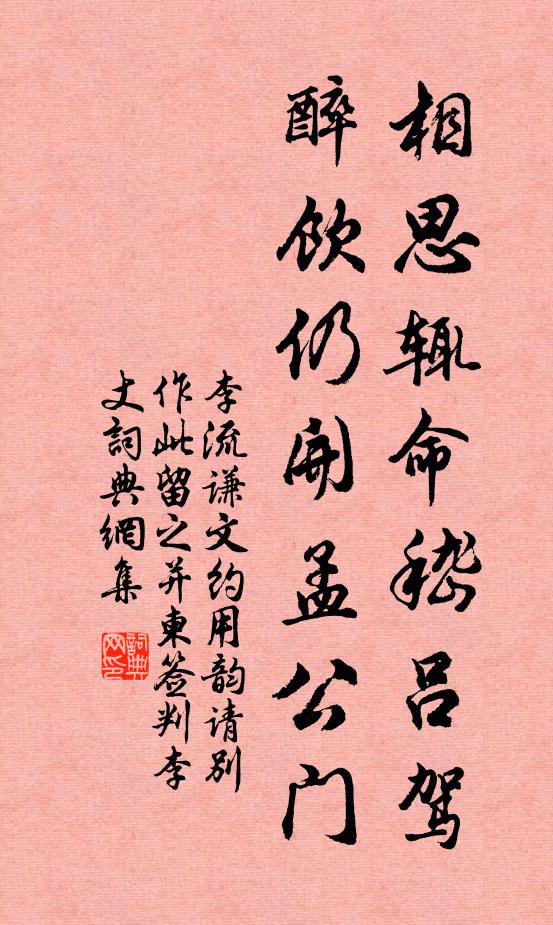 相思辄命嵇吕驾
醉饮仍開孟公门
李流谦文约用韵请别
作此留之并東签判李
丈詞典網集
詞典网印